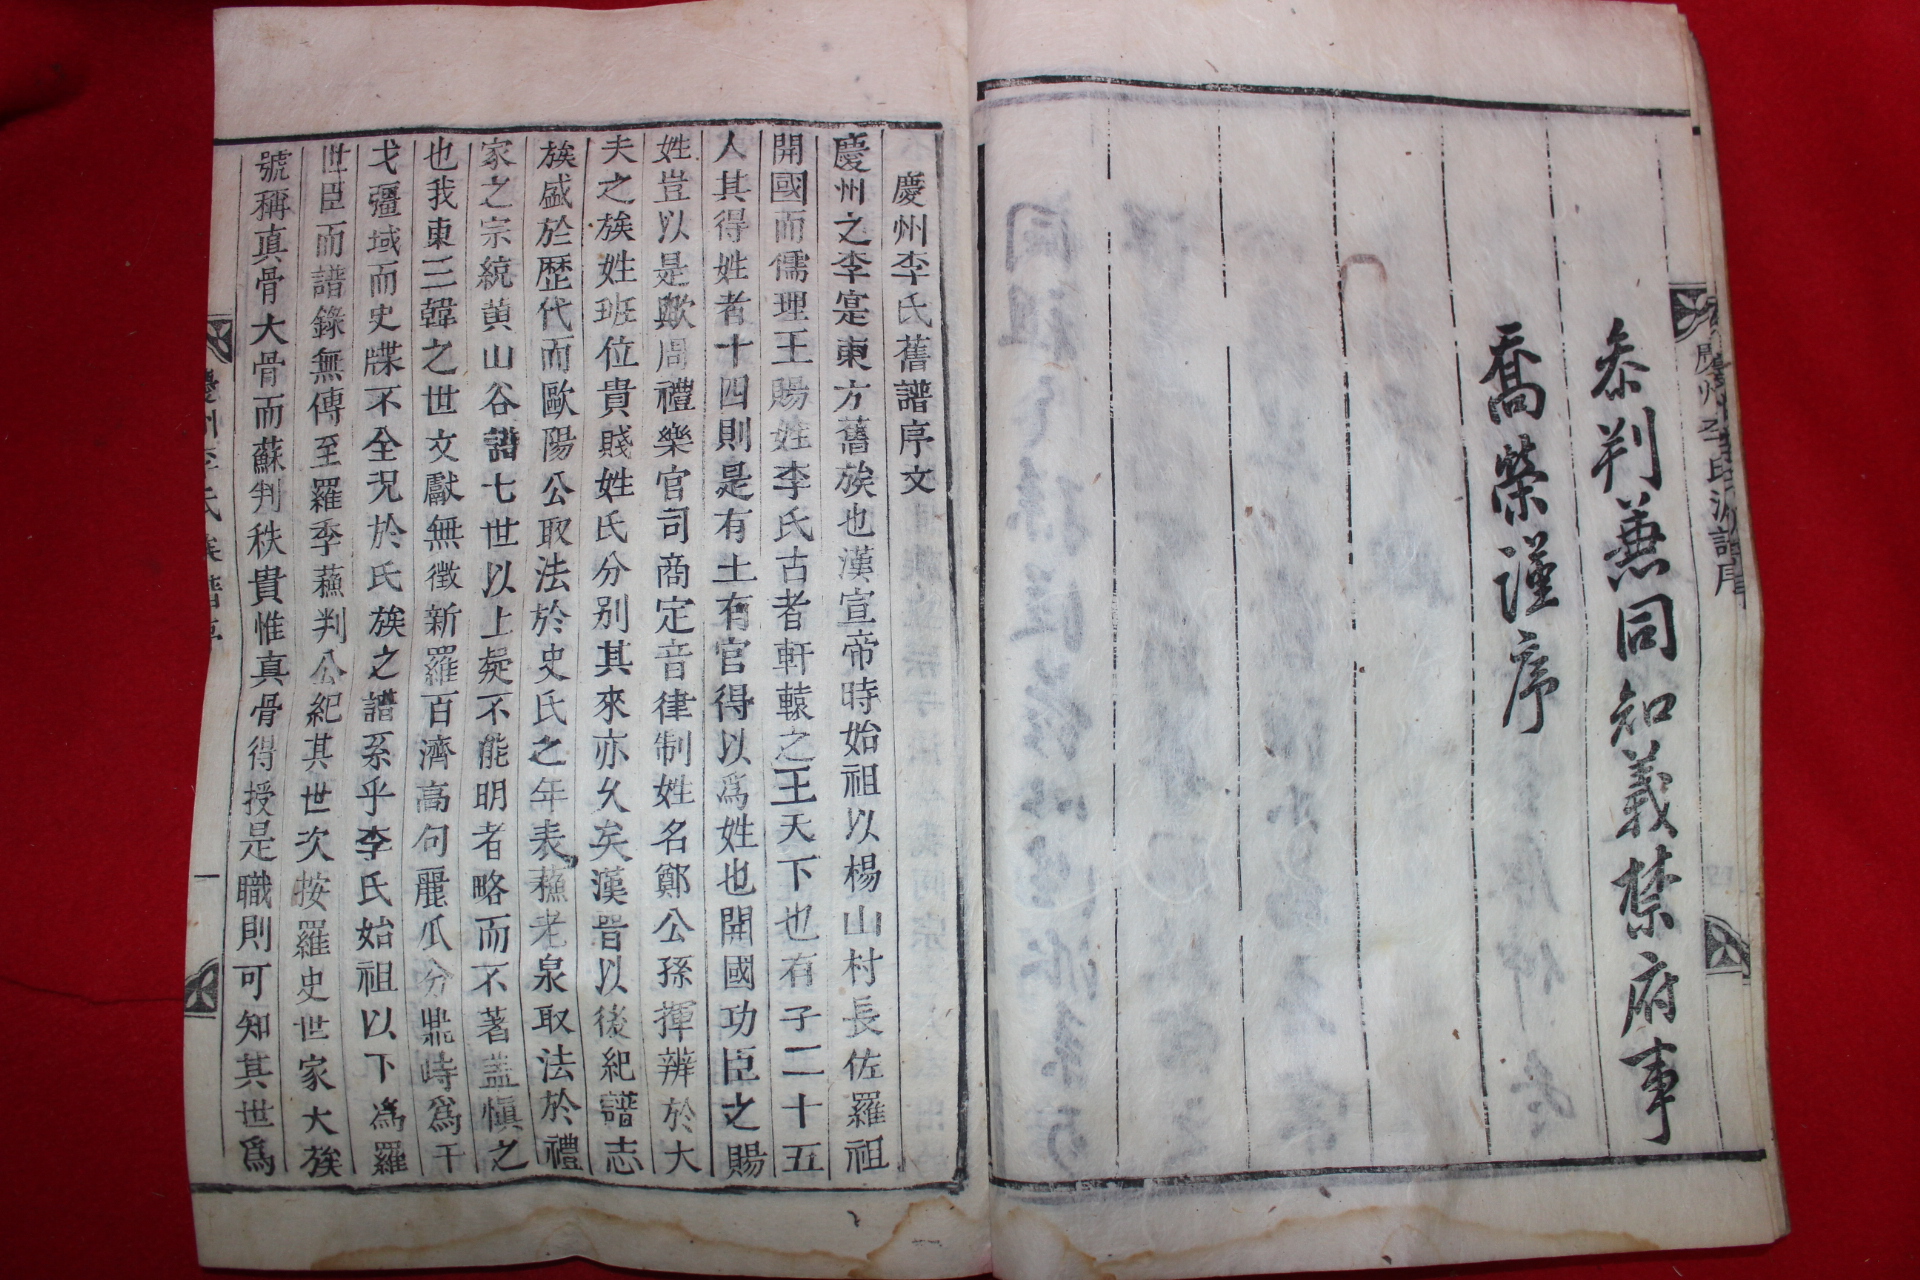 叅判兼同知義禁府事
喬榮謹序
慶州李氏舊譜序文
慶州之李寔東方舊族也漢宣帝時始祖以楊山村長佐羅祖
開國而儒理王賜姓李氏古者軒轅之王天下也有子二十五
人其得姓者十四則是有土有官得以爲姓也開國功臣之賜
姓豈以是歟周禮樂官司商定音律制姓名鄭公孫揮辨於大
夫之族姓班位貴賤姓氏分別其來亦久矣漢晋以後紀譜志
族盛於歷代而歐陽公取法於史氏之年表蘓老泉取法於禮
家之宗統黄山谷譜七世以上疑不能明者略而不著盖愼之
也我東三韓之世文獻無徵新羅百濟高句麗瓜分鼎峙爲干
戈疆域而史牒不全况於氏族之譜系乎李氏始祖以下爲羅
世臣而譜錄無傳至羅季蘓判公紀其世次按羅史世家大族
號稱真骨大骨而蘇判秩貴惟真骨得授是職則可知其世爲
慶州李氏族譜序
一